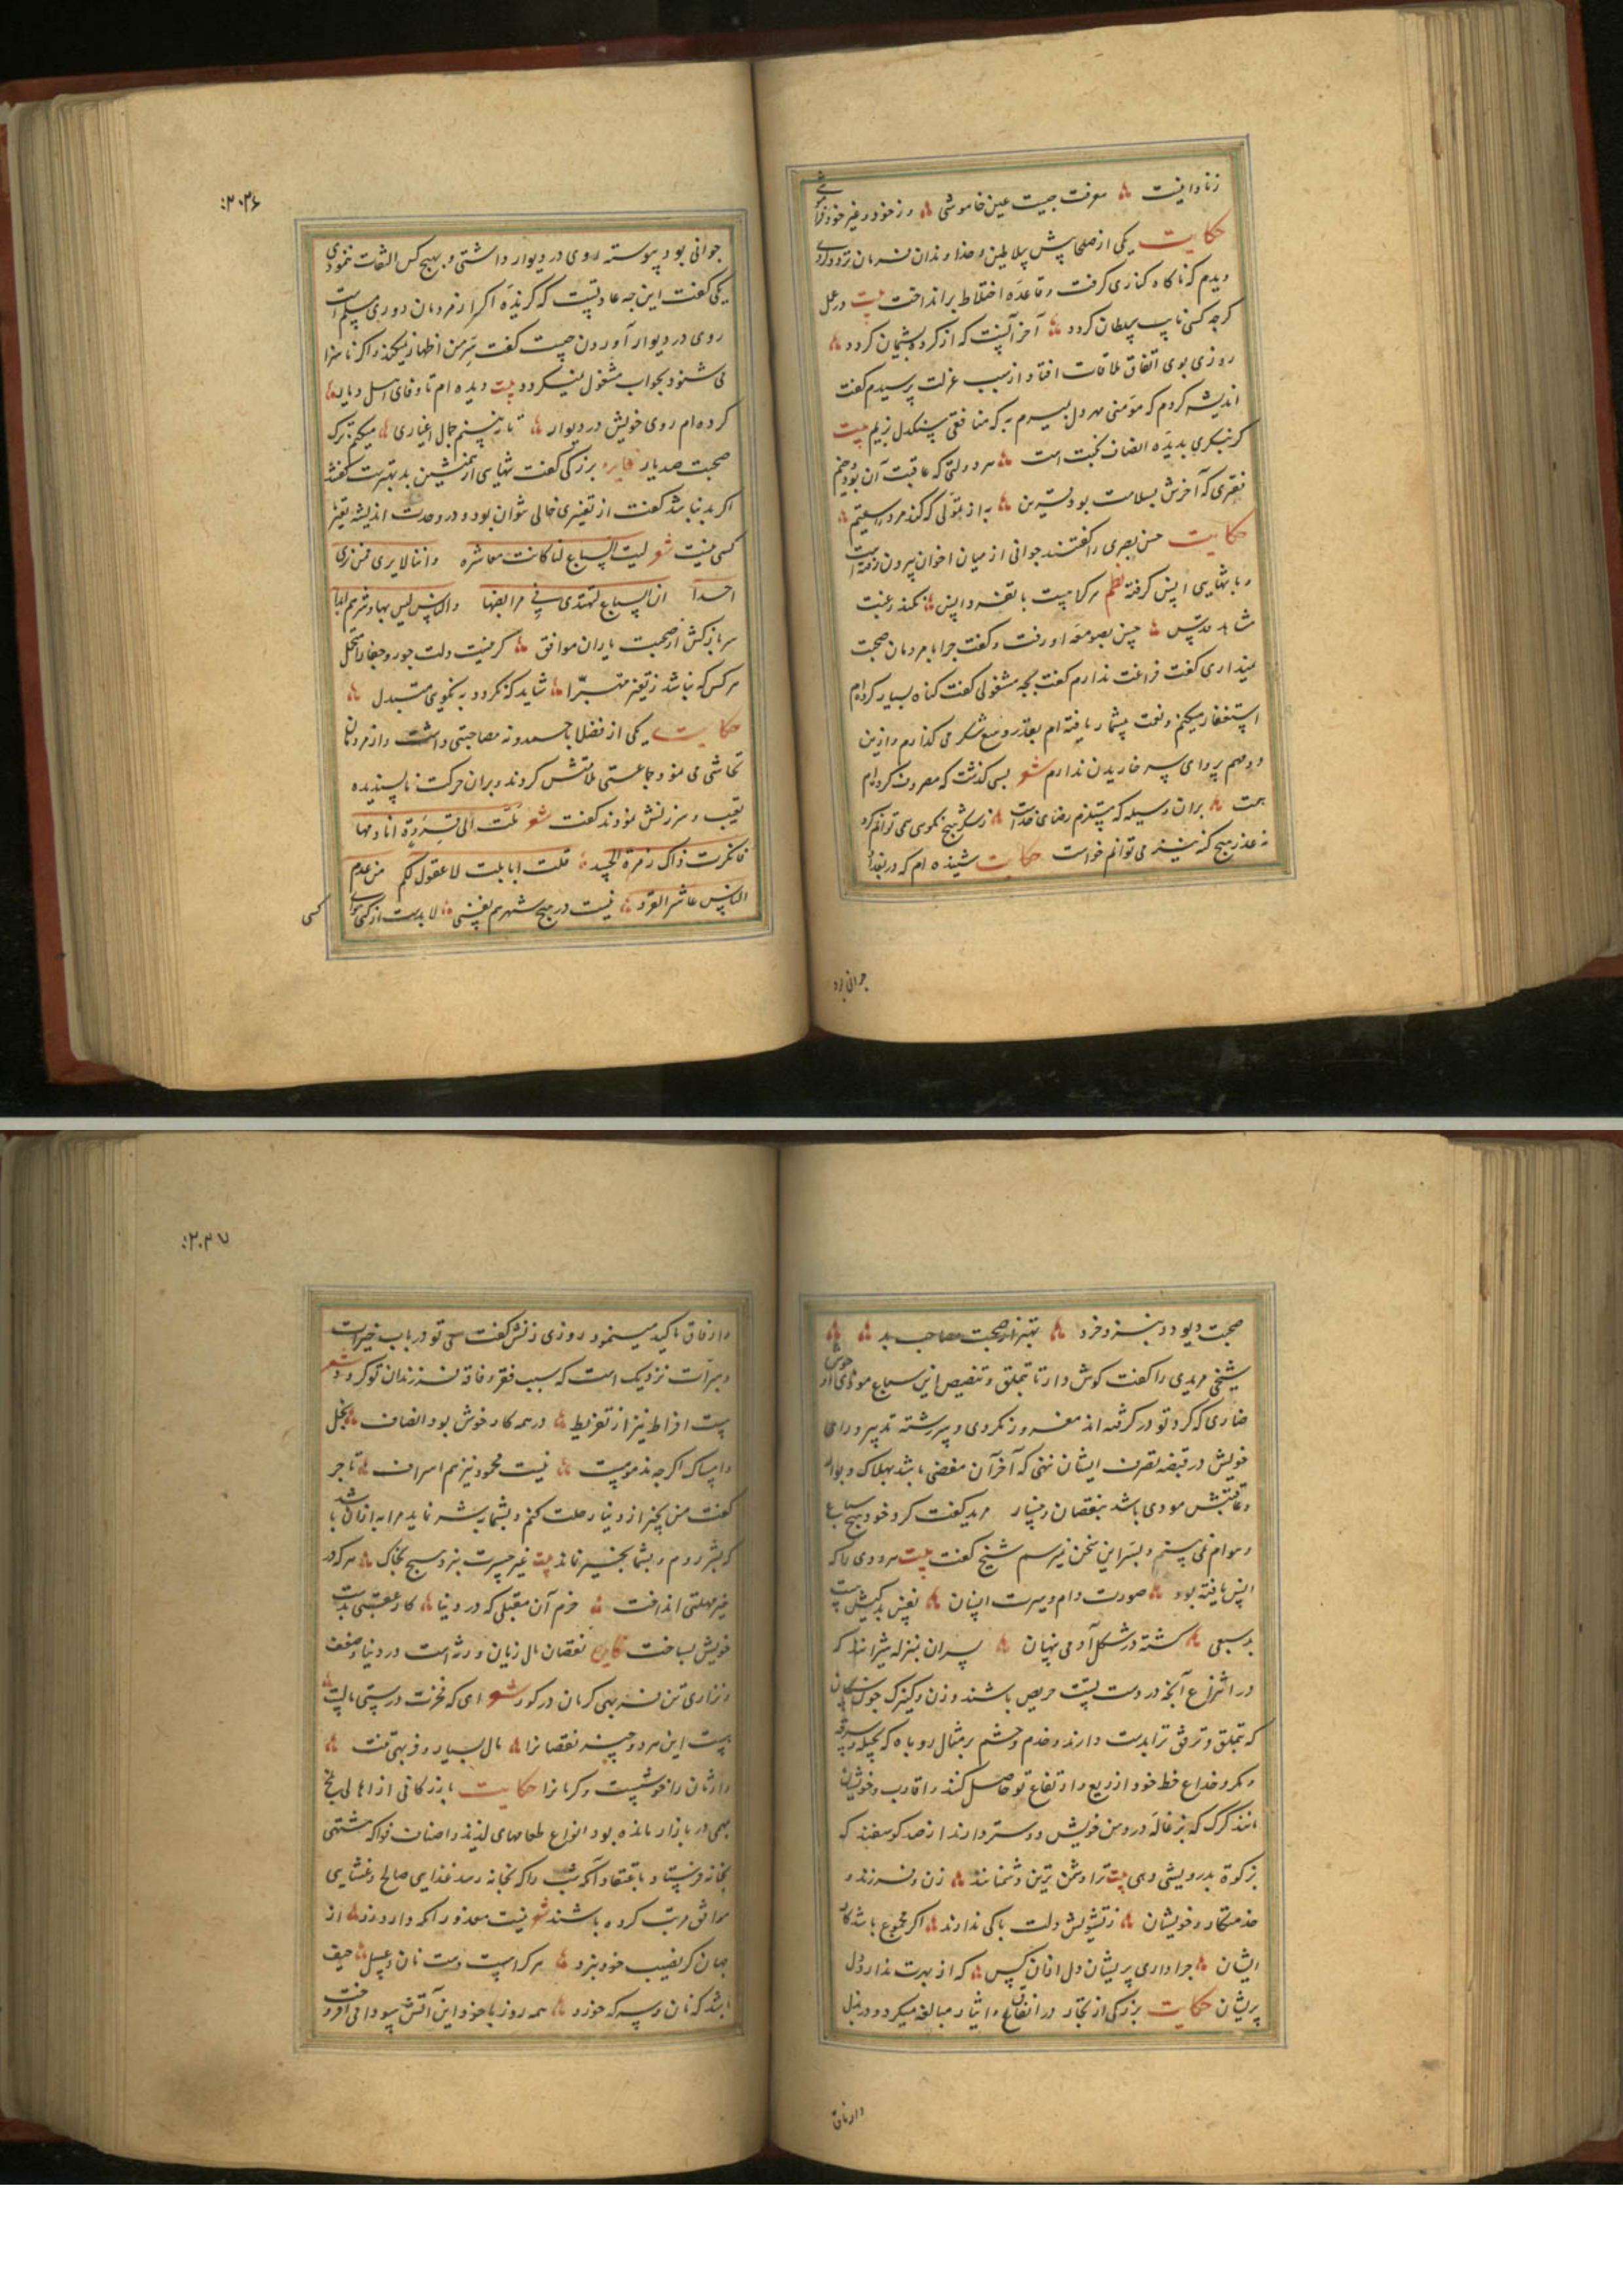 زنادانیست معرفت چیست عین خاموشی وز خود و غیر خود
حکایت یکی از صلحا پیش سلاطین و خداوندان فرمان تردد داری
دیدم که ناگاه کناری گرفت و قاعده اختلاط برانداخت بیت در عمل
گرچه کسی نایب سلطان گردد آخر آنست که از کرده پشیمان گردد
روزی بوی اتفاق ملاقات افتاد از سبب عزلت پرسیدم گفت
اندیشه کردم که مؤمنی مهر دل بمیرم به که منافقی سنگدل زیم بیت
گر بنگری بدیده انصاف نکبت است هر دولتی که عاقبت آن بود
فقری که آخرش بسلامت بود به از تمولی که کند مرد را سقیم
حکایت حسن بصری را گفتند جوانی از میان اخوان بیرون رفته است
و با تنهایی انس گرفته نظم هرکرا نیست با تفرد انس نکند رغبت
مشاهد قدس حسن بصومعه او رفت و گفت چرا با مردمان صحبت
نمیداری گفت فراغت ندارم گفت بچه مشغولی گفت گناه بسیار کرده‌ام
استغفار میکنم و نعمت بیشمار یافته‌ام بقدر وسع شکر می‌گذارم و ازین
دو مهم پروای سر خاریدن ندارم شعر بسی گذشت که مصروف کرده‌ام
همت بران وسیله که مستلزم رضای خداست ز شکر هیچ نکویی نمی‌توانم کرد
نه عذر هیچ گنه نیز می‌توانم خواست حکایت شنیده‌ام که در بغداد
جوانی بود
۲۰۲۶:
جوانی بود پیوسته روی در دیوار داشتی و بهیچ کس التفات ننمودی
یکی گفت این چه عادتیست که گزیده اگر از مردمان دوری مسلم است
روی در دیوار آوردن چیست گفت سر من اظهار میکند و اگر ناسزا
می‌شنود بجواب مشغول نمیگردد بیت دیده‌ام تا وفای اهل دیار
کرده‌ام روی خویش در دیوار تا نبینم جمال اغیاری میکنم ترک
صحبت صد یار فایده بزرگی گفت تنهایی از همنشین بد بهترست گفتند
اگر بد نباشد گفت از تغیری خالی نتوان بود و در وحدت اندیشه تغیر
کسی نیست شعر لیت السباع لنا کانت معاشرة واننا لا یری فمن نری
احدا ان السباع لتهتدی فی مرابضها والناس لیس بهاد شرهم ابدا
سر بازکش از صحبت یاران موافق گر نیست دلت جور و جفا را متحمل
هر کس که نباشد ز تغیر متبرا شاید که نگردد به نکویی متبدل
حکایت یکی از فضلا با حمدونه مصاحبتی داشت و از مردمان
تحاشی می‌نمود جماعتی ملامتش کردند و بران حرکت ناپسندیده
تعییب و سرزنش نمودند گفت شعر ملت الی قردة انادمها
فانکرت ذاک زمرة الحسد قلت ابا بلت لا عقول لکم من عدم
الناس عاشر القرد نیست در هیچ شهر هم نفسی لابدست از کسی
کسی
صحبت دیو و دد بنزد خرد بهتر از صحبت مصاحب بد
شیخی مریدی را گفت گوش دار تا بتملق و تبصبص این سباع موذی
ضاری که گرد تو در گرفته‌اند مغرور نگردی و سررشته تدبیر و رای
خویش در قبضه تصرف ایشان ننهی که آخر آن مفضی باشد بهلاک و بوار
و عاقبتش مودی باشد بنقصان و خسار مرید گفت گرد خود هیچ سباع
و هوام نمی‌بینم و بسر این سخن نمیرسم شیخ گفت بیت هر ددی را که
انس یافته بود صورت دام و سیرت انسان نفس بدکیش تست
بد سبعی گشته در شکل آدمی پنهان پسران بمنزله شیرانند که
در انتزاع آنچه در دست تست حریص باشند و زن و کنیزک چون سگان
که بتملق و ترفق ترا بدست دارند و خدم و حشم بر مثال روباه که بحیله و سرقه
و مکر و خداع حظ خود از ریع و ارتفاع تو حاصل کنند و اقارب و خویشان
مانند گرگ که بزغاله در دهن خویش دوستر دارند از صد گوسفند که
بزکوة بدرویشی دهی بیت ترا دشمن‌ترین دشمنانند زن و فرزند و
خدمتکار و خویشان ز تشویش دلت باکی ندارند اگر مجموع باشد کار
ایشان چرا داری پریشان دل ازان کس که از بهرت ندارد دل
پریشان حکایت بزرگی از تجار در انفاق و ایثار مبالغه میکرد و در بذل
وارفاق
۲۰۲۷:
وارفاق تأکید مینمود روزی زنش گفت سعی تو در باب خیرات
و مبرات نزدیک است که سبب فقر و فاقه فرزندان تو گردد شعر
هست افراط نیز از تفریط در همه کار خوش بود انصاف بخل
و امساک اگرچه مذمومست نیست محمود نیز هم اسراف تاجر
گفت من بخیر از دنیا رحلت کنم و بشما بد شر نماید مرا به ازان باشد تا
که بشر روم و بشما بخیر ماند بیت غیر حسرت نبرد هیچ بخاک هر که در
خیر مهلتی انداخت خرم آن مقبلی که در دنیا کار عقبی بدست
خویش بساخت فایده نقصان مال زیان ورثه است در دنیا و ضعف
و نزاری تن فربهی کرمان در گور شعر ای که فخرت در هستی مالیست
هست این هر دو چیز نقصانرا مال بسیار و فربهی تنت
وارثان را خوشست و کرمانرا حکایت بازرگانی از اهالی بلخ
بمهمی در بازار مانده بود انواع طعامهای لذیذ و اصناف فواکه مشتهی
بخانه فرستاد باعتقاد آنکه شب را که بخانه رسد غذایی صالح و عشایی
موافق مرتب کرده باشند شعر نیست معذور آنکه دارد زر از
جهان گر نصیب خود نبرد هر کرا هست دست نان و عسل حیف
باشد که نان و سرکه خورد همه روز با خود این آتش سودا می‌افروخت